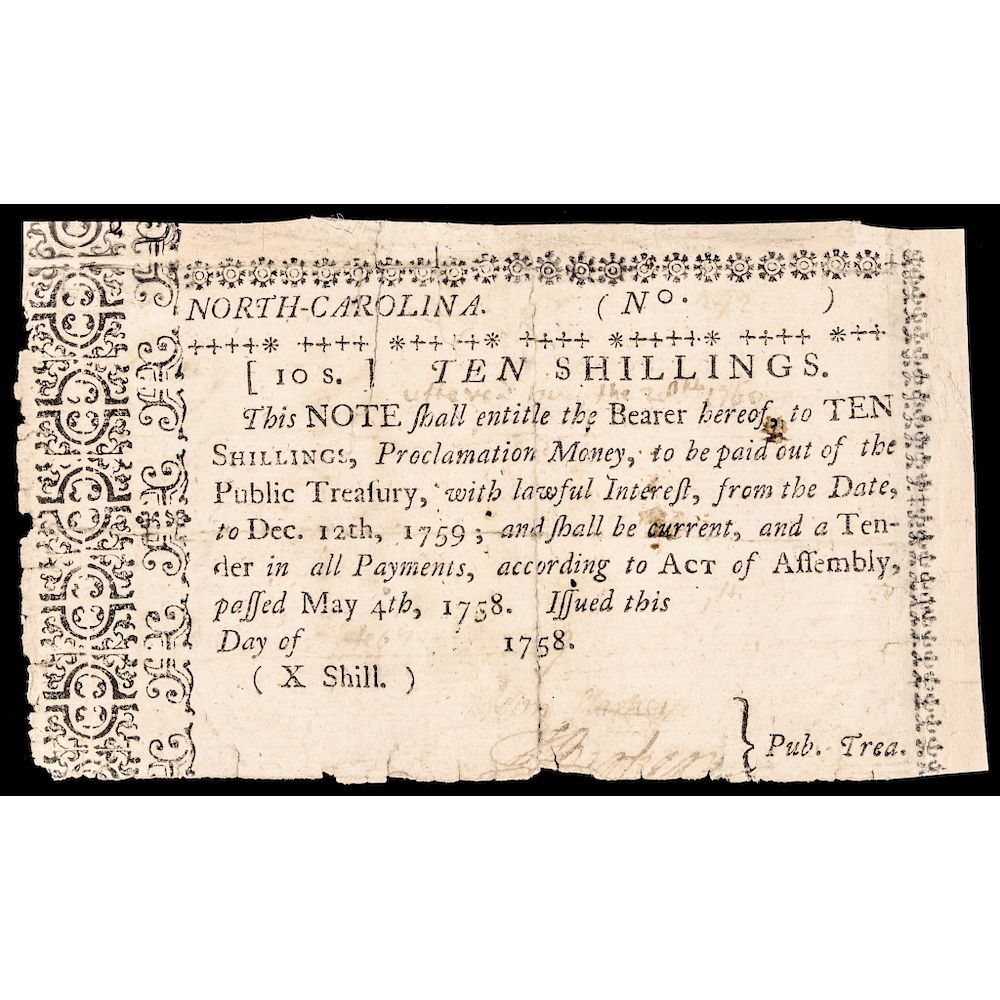 NORTH-CAROLINA. (Nº. )
[ 10 s. ] TEN SHILLINGS.
the
This NOTE ſhall entitle the Bearer hereof, to TEN
SHILLINGS, Proclamation Money, to be paid out of the
Public Treaſury, with lawful Intereſt, from the Date,
to Dec. 12th, 1759; and ſhall be current, and a Ten-
der in all Payments, according to ACT of Aſſembly,
paſſed May 4th, 1758. Iſſued this
Day of 1758.
( X Shill. )
} Pub. Trea.